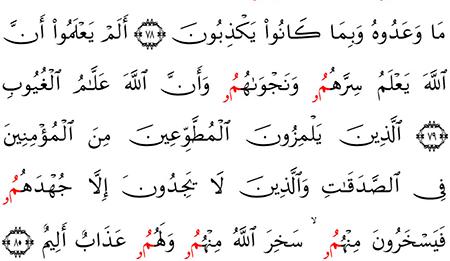 مَا وَعَدُوهُ وَبِمَا كَانُوا۟ يَكْذِبُونَ ٧٨ أَلَمْ يَعْلَمُوا۟ أَنَّ
ٱللَّهَ يَعْلَمُ سِرَّهُمُۥ وَنَجْوَىٰهُمُۥ وَأَنَّ ٱللَّهَ عَلَّٰمُ ٱلْغُيُوبِ
٧٩ ٱلَّذِينَ يَلْمِزُونَ ٱلْمُطَّوِّعِينَ مِنَ ٱلْمُؤْمِنِينَ
فِى ٱلصَّدَقَٰتِ وَٱلَّذِينَ لَا يَجِدُونَ إِلَّا جُهْدَهُمُۥ
فَيَسْخَرُونَ مِنْهُمُۥ ۙ سَخِرَ ٱللَّهُ مِنْهُمُۥ وَلَهُمُۥ عَذَابٌ أَلِيمٌ ٨٠